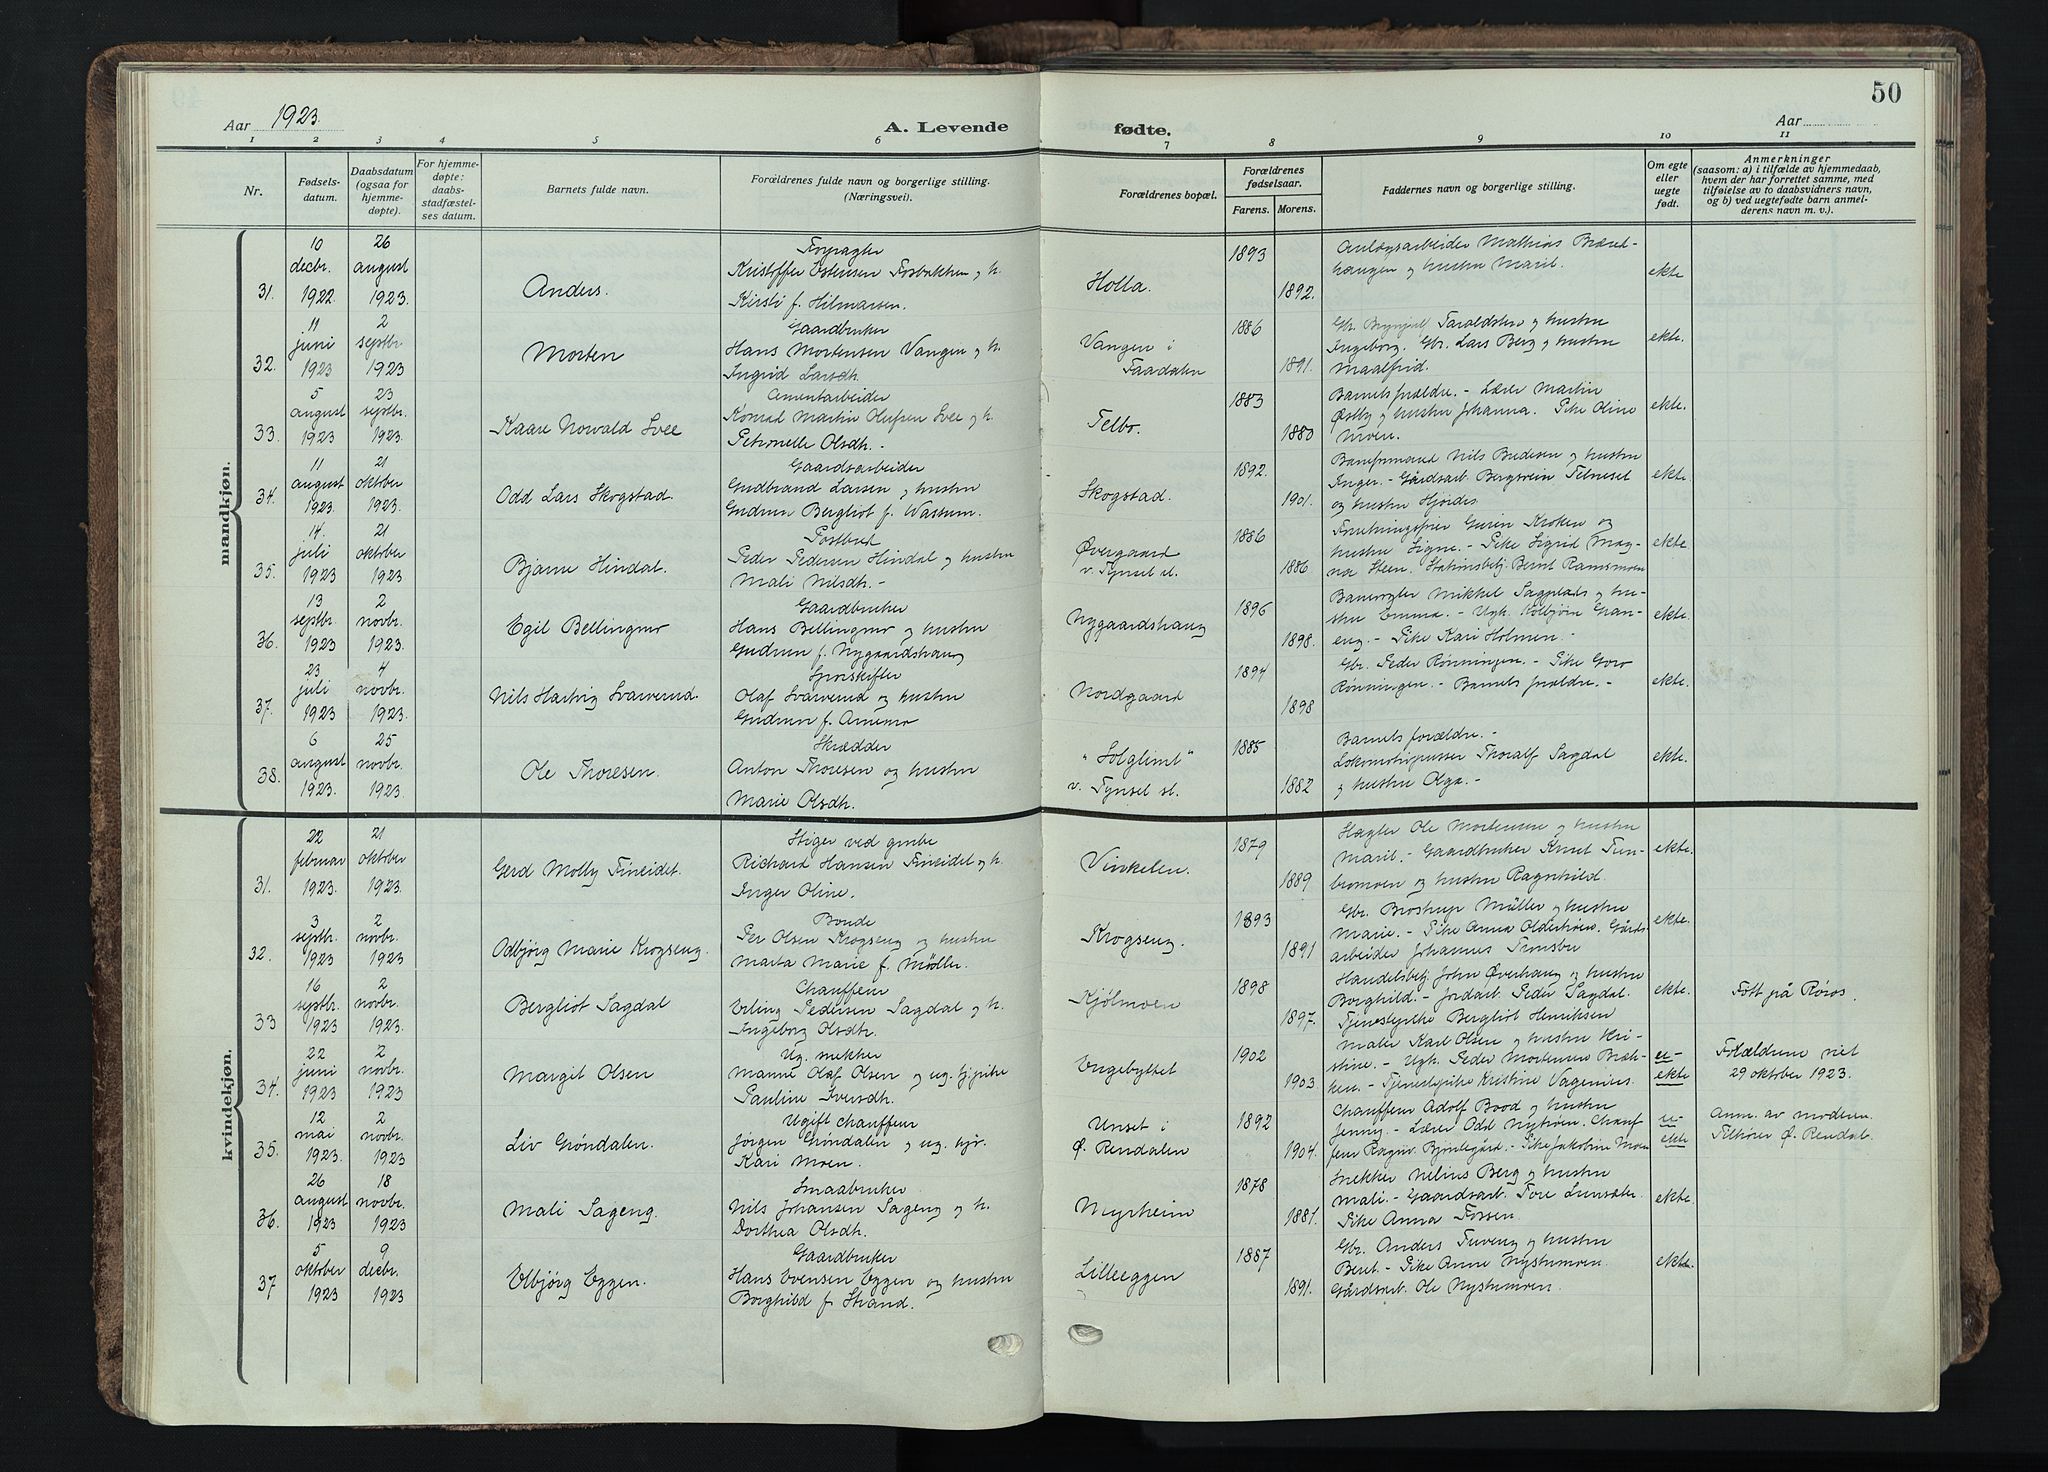 50
Aar 1923.
A. Levende fødte.
Aar
1 2 3 4 5 6 7 8 9 10 11
Nr.
Fødsels-
datum.
Daabsdatum
(ogsaa for
hjemme-
døpte).
For hjemme-
døpte:
daabs-
stadfæstel-
ses datum.
Barnets fulde navn.
Forældrenes fulde navn og borgerlige stilling.
(Næringsvei).
Forældrenes bopæl.
Forældrenes
fødselsaar.
Farens. Morens.
Faddernes navn og borgerlige stilling.
Om egte
eller
uegte
født.
Anmerkninger
(saasom: a) i tilfælde av hjemmedaab,
hvem der har forrettet samme, med
tilføielse av to daabsvidners navn,
og b) ved uegtefødte barn anmel-
derens navn m. v.).
mandkjøn.
31.
10
decbr.
1922.
26
august
1923.
Anders.
Forpagter
Kristoffer Estensen Fosbakken og h.
Kirsti f. Hilmarsen.
Holla.
1893
1892.
Anlægsarbeider Mathias Brænd-
haugen og hustru Marit.
ekte
32.
11
juni
1923
2
septbr.
1923
Morten
Gaardbruker
Hans Mortensen Vangen og h.
Ingrid Larsdh.
Vangen i
Faadalen
1886
1891.
Gbr. Brynjulf Taraldsten og hustru
Ingeborg. Gbr. Lars Berg og hustru
Maalfrid.
ekte.
33.
5
august
1923
23
septbr.
1923.
Kaare Norvald Svee
Cementarbeider
Konrad Martin Olufsen Svee og h.
Petronelle Olsdh. -
Telbo.
1883
1880
Barnets forældre. - Lærer Martin
Østby og hustru Johanna. Pike Oline
Moen.
ekte.
34.
11
august
1923.
21
oktober
1923.
Odd Lars Skogstad.
Gaardsarbeider
Gudbrand Larsen og hustru
Gudrun Bergliot f. Wassum.
Skogstad.
1892.
1901.
Baneformand Nils Bredesen og hustru
Inger. - Gårdsarb. Bergsvein Telneset
og hustru Hjørdis.
ekte
35.
14.
juli
1923
21
oktober
1923
Bjarne Hindal.
Postbud
Peder Pedersen Hindal og hustru
Mali Nilsdh. -
Øvergaard
v. Tynset st.
1886
1886.
Forretningsfører Gunn Kroken og
hustru Signe. - Pike Sigrid Mag-
na Steen. Stationsbetj. Bernt Ramsmoen
ekte
36.
13
septbr.
1923
2
novbr.
1923.
Egil Bellingmo
Gaardbruker
Hans Bellingmo og hustru
Gudrun f. Nygaardshaug
Nygaardshaug
1896
1898.
Banevogter Mikkel Sagplads og hu-
stru Emma. - Ugk. Kolbjørn Gran-
eng. - Pike Kari Holmen. -
ekte.
37.
23
juli
1923
4
novbr.
1923.
Nils Hartvig Svarverud.
Sporskifter
Olaf Svarverud og hustru
Gudrun f. Arnemo
Nordgaard
1894
1898
Gbr. Peder Rønningen. - Pike Goro
Rønningen. - Barnets forældre. -
ekte.
38.
6
august
1923.
25
novbr.
1923.
Ole Thoresen.
Skrædder
Anton Thoresen og hustru
Marie Olsdh.
"Solglimt"
v. Tynset st.
1885
1882
Barnets forældre. -
Lokomotivpusser Thoralf Sagdal
og hustru Olga. -
ekte.
kvindekjøn.
31.
22
februar
1923.
21
oktober
1923.
Gerd Molly Fineidet.
Stiger ved grube
Richard Hansen Fineidet og h.
Inger Oline.
Vinkelen.
1879
1889
Hagler Ole Mortensen og hustru
Marit. - Gaardbruker Knut Tun-
bromoen og hustru Ragnhild.
ekte.
32.
3
septbr.
1923
2
novbr.
1923
Odbjørg Marie Krogseng.
Bonde
Per Olsen Krogseng og hustru
Marta Marie f. Møller.
Krogseng.
1893
1891
Gbr. Brostrup Müller og hustru
Marie. - Pike Anna . Gårds-
arbeider Johannes Tronsbu
ekte.
33
16
septbr.
1923
2
novbr.
1923.
Bergliot Sagdal
Chauffeur
Erling Pedersen Sagdal og h.
Ingeborg Olsdh.
Kjølmoen
1898
1897.
Handelsbetj. John Øverhaug og hustru
Borghild. - Jordarb. Peder Sagdal.
Tjenestepike Bergliot Henriksen
ekte.
Født på Røros.
34.
22
juni
1923
2
novbr.
1923
Margit Olsen
Ug. snekker
Manne Olaf Olsen og ug. tj.pike
Pauline Iversdh.
Engebyttet
1902
1903.
Maler Karl Olsen og hustru Kri-
stine. - Ugk. Peder Mortensen Bræk-
ken. - Tjenestepike Kristine Vagenius.
u-
ekte
Forældrene viet
29 oktober 1923.
35.
12
mai
1923.
2
novbr.
1923
Liv Grøndalen.
Ugift chauffeur
Jørgen Grøndalen og ug. tjp.
Kari Moen.
Unset i
Ø. Rendalen
1892
1904.
Chauffeur Adolf Bood og hustru
Jenny. - Lærer Odd Nytrøen. Chauf
før Ragnv. Bjørtegård. - Pike Jakobine Moen
u-
ekte
Anm. av moderen.
Tilhører Ø. Rendal.
36.
26
august
1923
18
novbr.
1923
Mali Sageng.
Smaabruker
Nils Johansen Sageng og h.
Dorthea Olsdh.
Myrheim
1878
1881.
Snekker Nelius Berg og hustru
Mali. - Gaardsarb. Tore Lunsæter.
Pike Anna Fossen.
ekte.
37
5
oktober
1923
9
decbr.
1923
Elbjørg Eggen.
Gaardbruker
Hans Evensen Eggen og hustru
Borghild f. Strand.
Lilleeggen
1887
1891.
Gbr. Anders Tuveng og hustru
Beret. - Pike Anne Nystumoen.
Gårdsarb. Ole Nystumoen.
ekte.